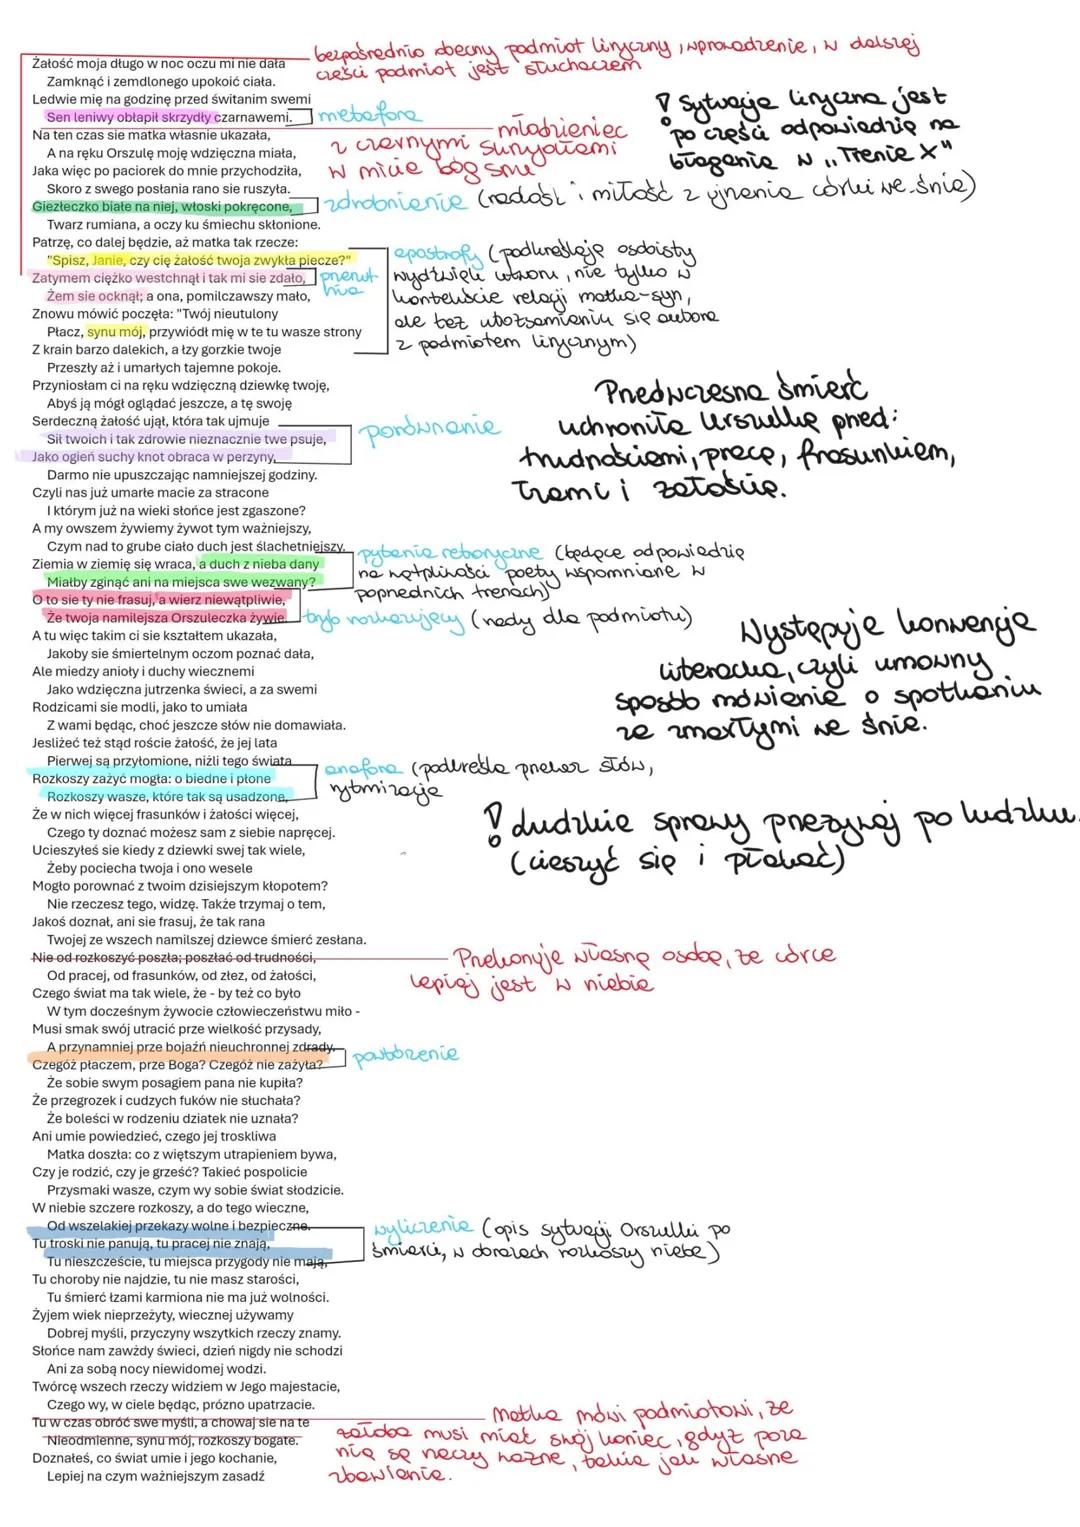 bezpośrednio obecny podmiot liryczny, wprowadzenie, w dalszej
części podmiot jest słuchaczem
Żałość moja długo w noc oczu mi nie dała
Zamknąć i zemdlonego upokoić ciała.
Ledwie mię na godzinę przed świtanim swemi
Sen leniwy obłapił skrzydły czarnawemi.
metafora
młodzieniec
z czarnymi skrzydłami
w micie bóg snu
! Sytuacja liryczna jest
po części odpowiedzią na
błagania w „Trenie X"
Na ten czas sie matka własnie ukazała,
A na ręku Orszulę moję wdzięczna miała,
Jaka więc po paciorek do mnie przychodziła,
Skoro z swego posłania rano sie ruszyła.
Giezłeczko białe na niej, włoski pokręcone,
zdrobnienie (radość i miłość z ujrzenia córki we śnie)
Twarz rumiana, a oczy ku śmiechu skłonione.
Patrzę, co dalej będzie, aż matka tak rzecze:
"Spisz, Janie, czy cię żałość twoja zwykła piecze?"
Zatymem ciężko westchnął i tak mi sie zdało,
Żem sie ocknął; a ona, pomilczawszy mało,
przerzut-
nia
apostrofy (podkreślają osobisty
wydźwięk utworu, nie tylko w
kontekście relacji matka-syn,
ale też utożsamieniu się autora
z podmiotem lirycznym)
Znowu mówić poczęła: "Twój nieutulony
Płacz, synu mój, przywiódł mię w te tu wasze strony
Z krain barzo dalekich, a łzy gorzkie twoje
Przeszły aż i umarłych tajemne pokoje.
Przyniosłam ci na ręku wdzięczną dziewkę twoję,
Abyś ją mógł oglądać jeszcze, a tę swoję
Serdeczną żałość ujął, która tak ujmuje
Sił twoich i tak zdrowie nieznacznie twe psuje,
Jako ogień suchy knot obraca w perzyny,
porównanie
Przedwczesna śmierć
uchroniła Urszulkę przed:
trudnościami, pracą, frasunkiem,
łzami i żałością.
Darmo nie upuszczając namniejszej godziny.
Czyli nas już umarłe macie za stracone
I którym już na wieki słońce jest zgaszone?
A my owszem żywiemy żywot tym ważniejszy,
Czym nad to grube ciało duch jest ślachetniejszy.
Ziemia w ziemię się wraca, a duch z nieba dany
Miałby zginąć ani na miejsca swe wezwany?
pytania retoryczne (będące odpowiedzią
na wątpliwości poety wspomniane w
poprzednich trenach)
O to sie ty nie frasuj, a wierz niewątpliwie,
Że twoja namilejsza Orszuleczka żywie.
tryb rozkazujący (rady dla podmiotu)
Występuje konwencja
literacka, czyli umowny
sposób mówienia o spotkaniu
ze zmarłymi we śnie.
A tu więc takim ci sie kształtem ukazała,
Jakoby sie śmiertelnym oczom poznać dała,
Ale miedzy anioły i duchy wiecznemi
Jako wdzięczna jutrzenka świeci, a za swemi
Rodzicami sie modli, jako to umiała
Z wami będąc, choć jeszcze słów nie domawiała.
Jesliżeć też stąd roście żałość, że jej lata
Pierwej są przyłomione, niżli tego świata
Rozkoszy zażyć mogła: o biedne i płone
Rozkoszy wasze, które tak są usadzone,
anafora (podkreśla przekaz słów,
rytmizacja
Że w nich więcej frasunków i żałości więcej,
Czego ty doznać możesz sam z siebie napręcej.
! ludzkie sprawy przeżywaj po ludzku.
(cieszyć się i płakać)
Ucieszyłeś sie kiedy z dziewki swej tak wiele,
Żeby pociecha twoja i ono wesele
Mogło porownać z twoim dzisiejszym kłopotem?
Nie rzeczesz tego, widzę. Także trzymaj o tem,
Jakoś doznał, ani sie frasuj, że tak rana
Twojej ze wszech namilszej dziewce śmierć zesłana.
Nie od rozkoszyć poszła; poszłać od trudności,
Od pracej, od frasunków, od złez, od żałości,
Przekonuje własną osobą, że córce
lepiej jest w niebie
Czego świat ma tak wiele, że - by też co było
W tym doczesnym żywocie człowieczeństwu miło -
Musi smak swój utracić prze wielkość przysady,
A przynamniej prze bojaźń nieuchronnej zdrady.
Czegóż płaczem, prze Boga? Czegóż nie zażyła?
powtórzenie
Że sobie swym posagiem pana nie kupiła?
Że przegrozek i cudzych fuków nie słuchała?
Że boleści w rodzeniu dziatek nie uznała?
Ani umie powiedzieć, czego jej troskliwa
Matka doszła: co z więtszym utrapieniem bywa,
Czy je rodzić, czy je grześć? Takieć pospolicie
Przysmaki wasze, czym wy sobie świat słodzicie.
W niebie szczere rozkoszy, a do tego wieczne,
Od wszelakiej przekazy wolne i bezpieczne.
Tu troski nie panują, tu pracej nie znają,
Tu nieszczeście, tu miejsca przygody nie mają,
wyliczenia (opis sytuacji Orszulki po
śmierci, w obrazach rozkoszy nieba)
Tu choroby nie najdzie, tu nie masz starości,
Tu śmierć łzami karmiona nie ma już wolności.
Żyjem wiek nieprzeżyty, wiecznej używamy
Dobrej myśli, przyczyny wszytkich rzeczy znamy.
Słońce nam zawżdy świeci, dzień nigdy nie schodzi
Ani za sobą nocy niewidomej wodzi.
Twórcę wszech rzeczy widziem w Jego majestacie,
Czego wy, w ciele będąc, prózno upatrzacie.
Tu w czas obróć swe myśli, a chowaj sie na te
Nieodmienne, synu mój, rozkoszy bogate.
Doznałeś, co świat umie i jego kochanie,
Lepiej na czym ważniejszym zasadź
Matka mówi podmiotowi, że
żałoba musi mieć swój koniec, gdyż poza
nią są rzeczy ważne, takie jak własne
zbawienie.